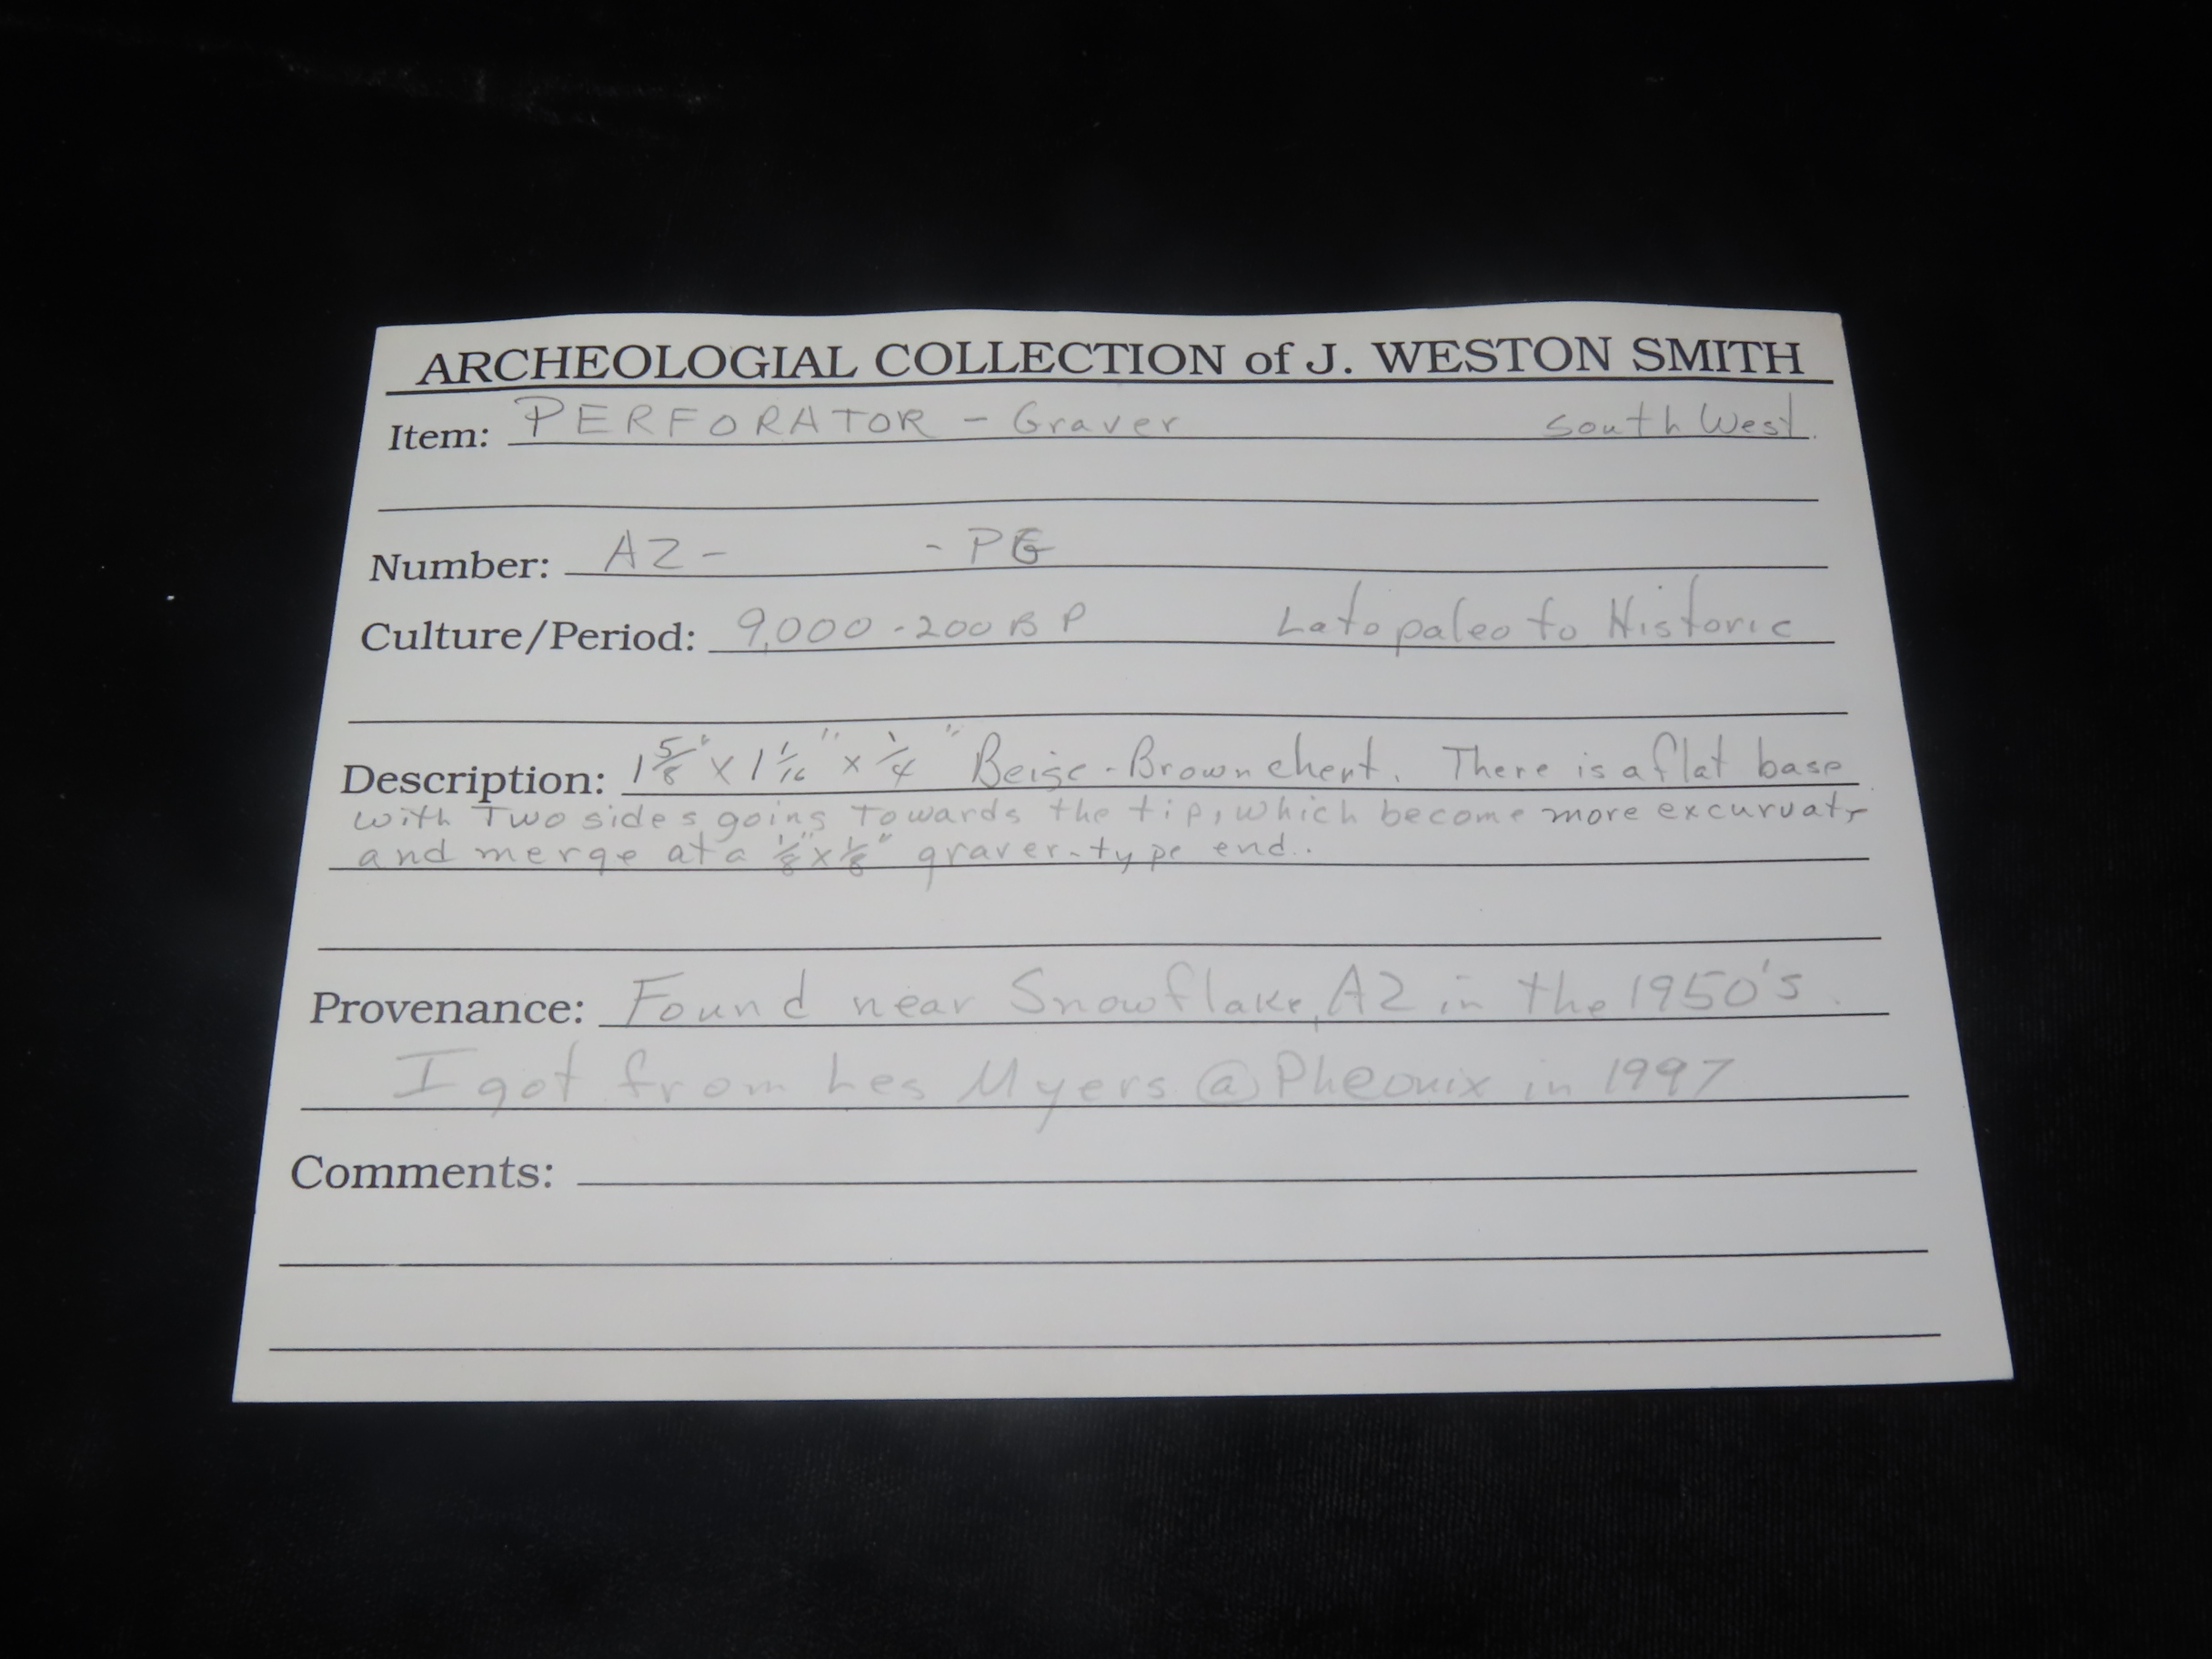 ARCHEOLOGIAL COLLECTION of J. WESTON SMITH
Item: PERFORATOR - Graver South West.
Number: AZ- - PG
Culture/Period: 9,000 - 200 BP Lato paleo to Historic
Description: 1 5/8" x 1 1/16" x 1/4" Beige-Brown chert. There is a flat base
with Two sides going Towards the tip, which become more excurvate
and merge at a 1/8" x 1/8" graver-type end.
Provenance: Found near Snowflake, AZ in the 1950's.
I got from Les Myers @ Pheonix in 1997
Comments: